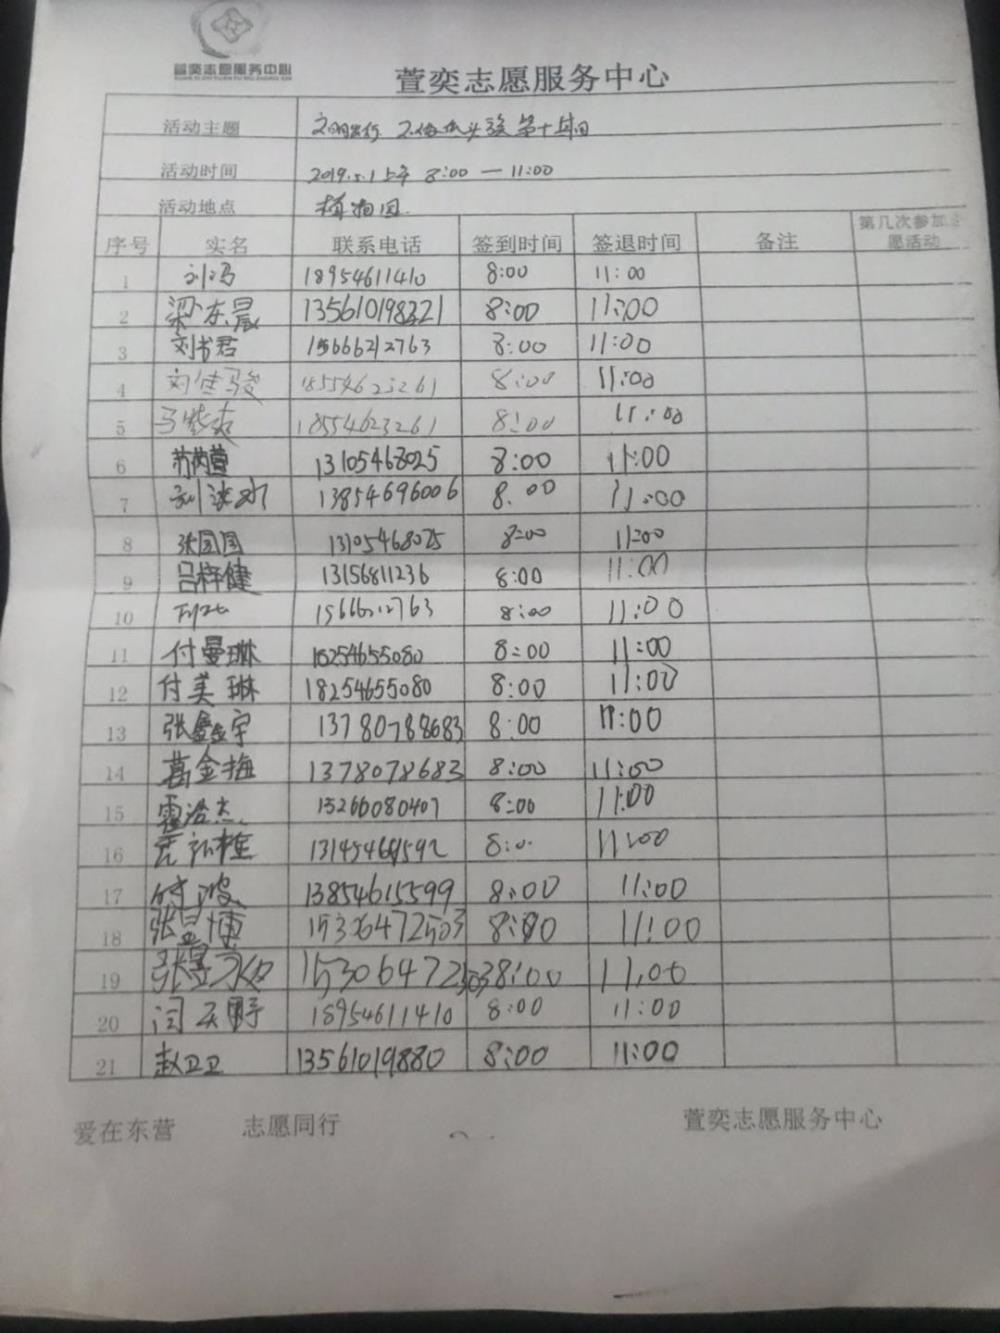 萱奕志愿服务中心
萱奕志愿服务中心
活动主题 文明出行 第十期
活动时间 2019.5.1上午 8:00 — 11:00
活动地点 植物园
序号 实名 联系电话 签到时间 签退时间 备注 第几次参加志愿活动
1 刘冯 18954611410 8:00 11:00
2 梁东晨 135610198321 8:00 11:00
3 刘书君 15666212763 8:00 11:00
4 刘佳骏 18554623261 8:00 11:00
5 马紫爽 18554623261 8:00 11:00
6 苏芮萱 13105468025 8:00 11:00
7 13854696006 8:00 11:00
8 张国国 13105468025 8:00 11:00
9 吕梓健 13156811236 8:00 11:00
10 15666212763 8:00 11:00
11 付曼琳 18254655080 8:00 11:00
12 付美琳 18254655080 8:00 11:00
13 张鑫宇 13780788683 8:00 11:00
14 葛金梅 1378078683 8:00 11:00
15 霍浩杰 15266080407 8:00 11:00
16 8:0 11:00
17 付波 13854615599 8:00 11:00
18 张昱博 15306472503 8:00 11:00
19 张昱 15306472503 8:00 11:00
20 闫天野 18954611410 8:00 11:00
21 赵卫卫 13561019880 8:00 11:00
爱在东营 志愿同行 萱奕志愿服务中心